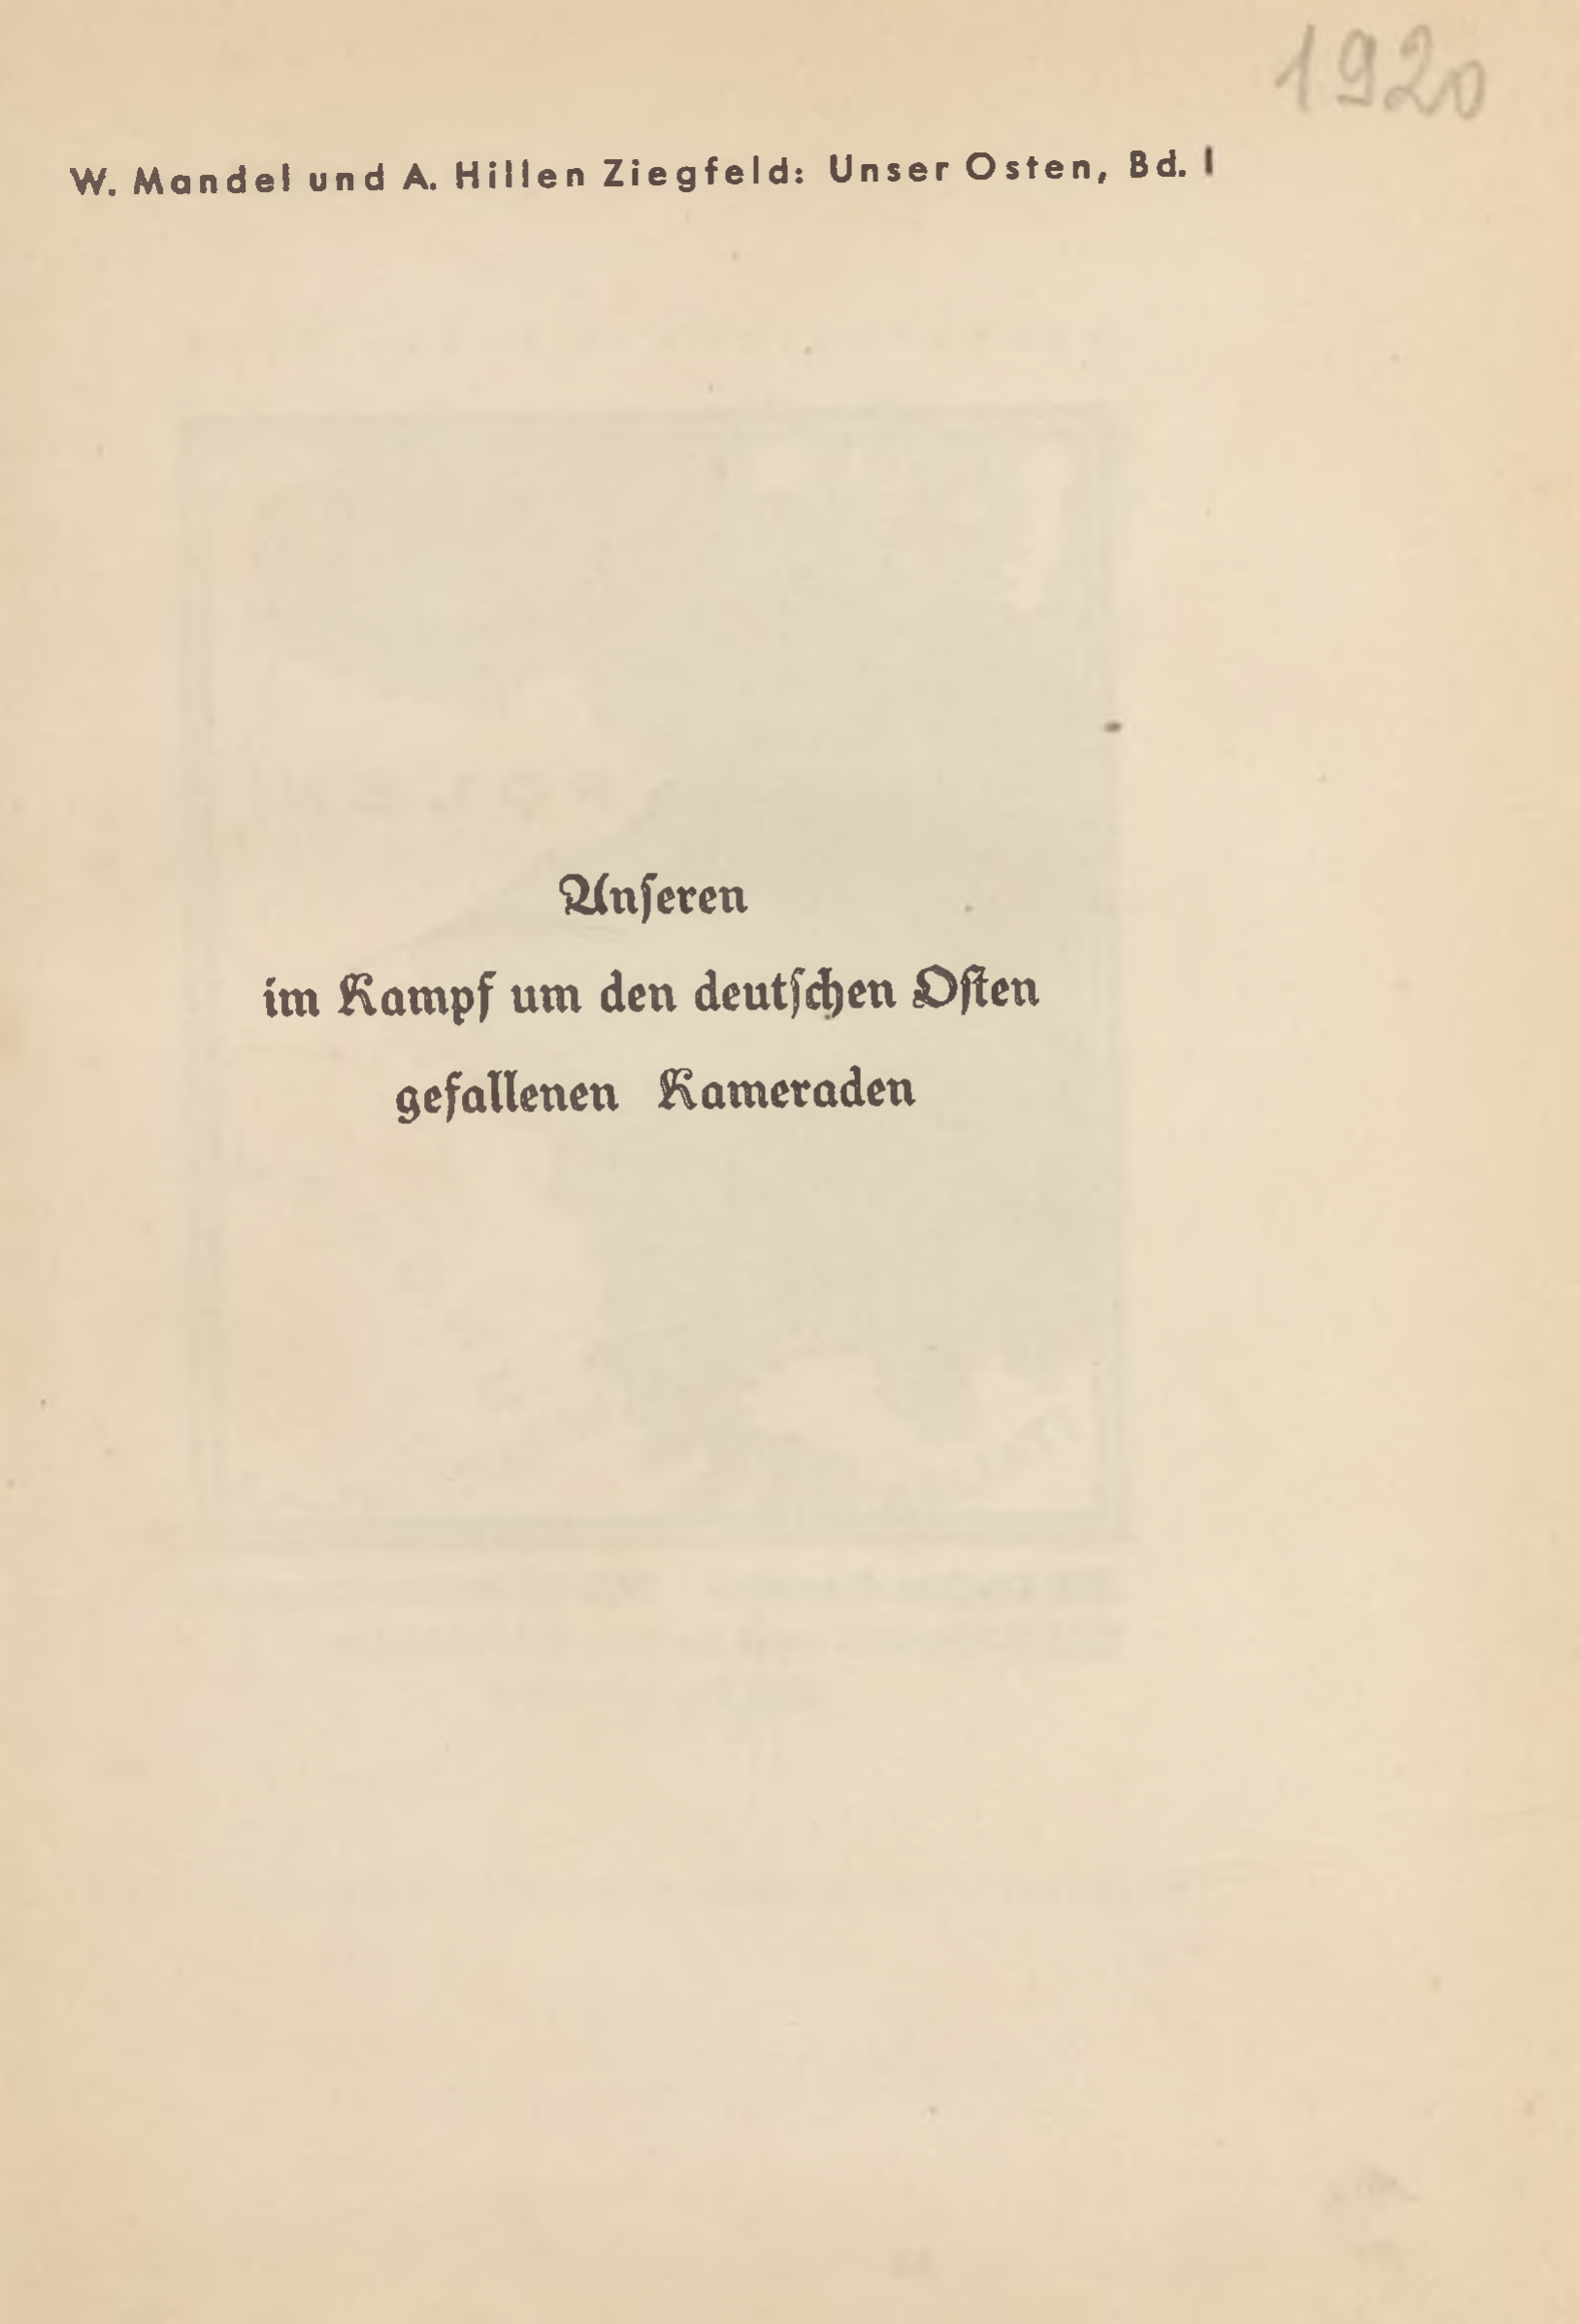 1920
W. Mandel und A. Hillen Ziegfeld: Unser Osten, Bd. I
Unſeren
im Kampf um den deutſchen Oſten
gefallenen Kameraden